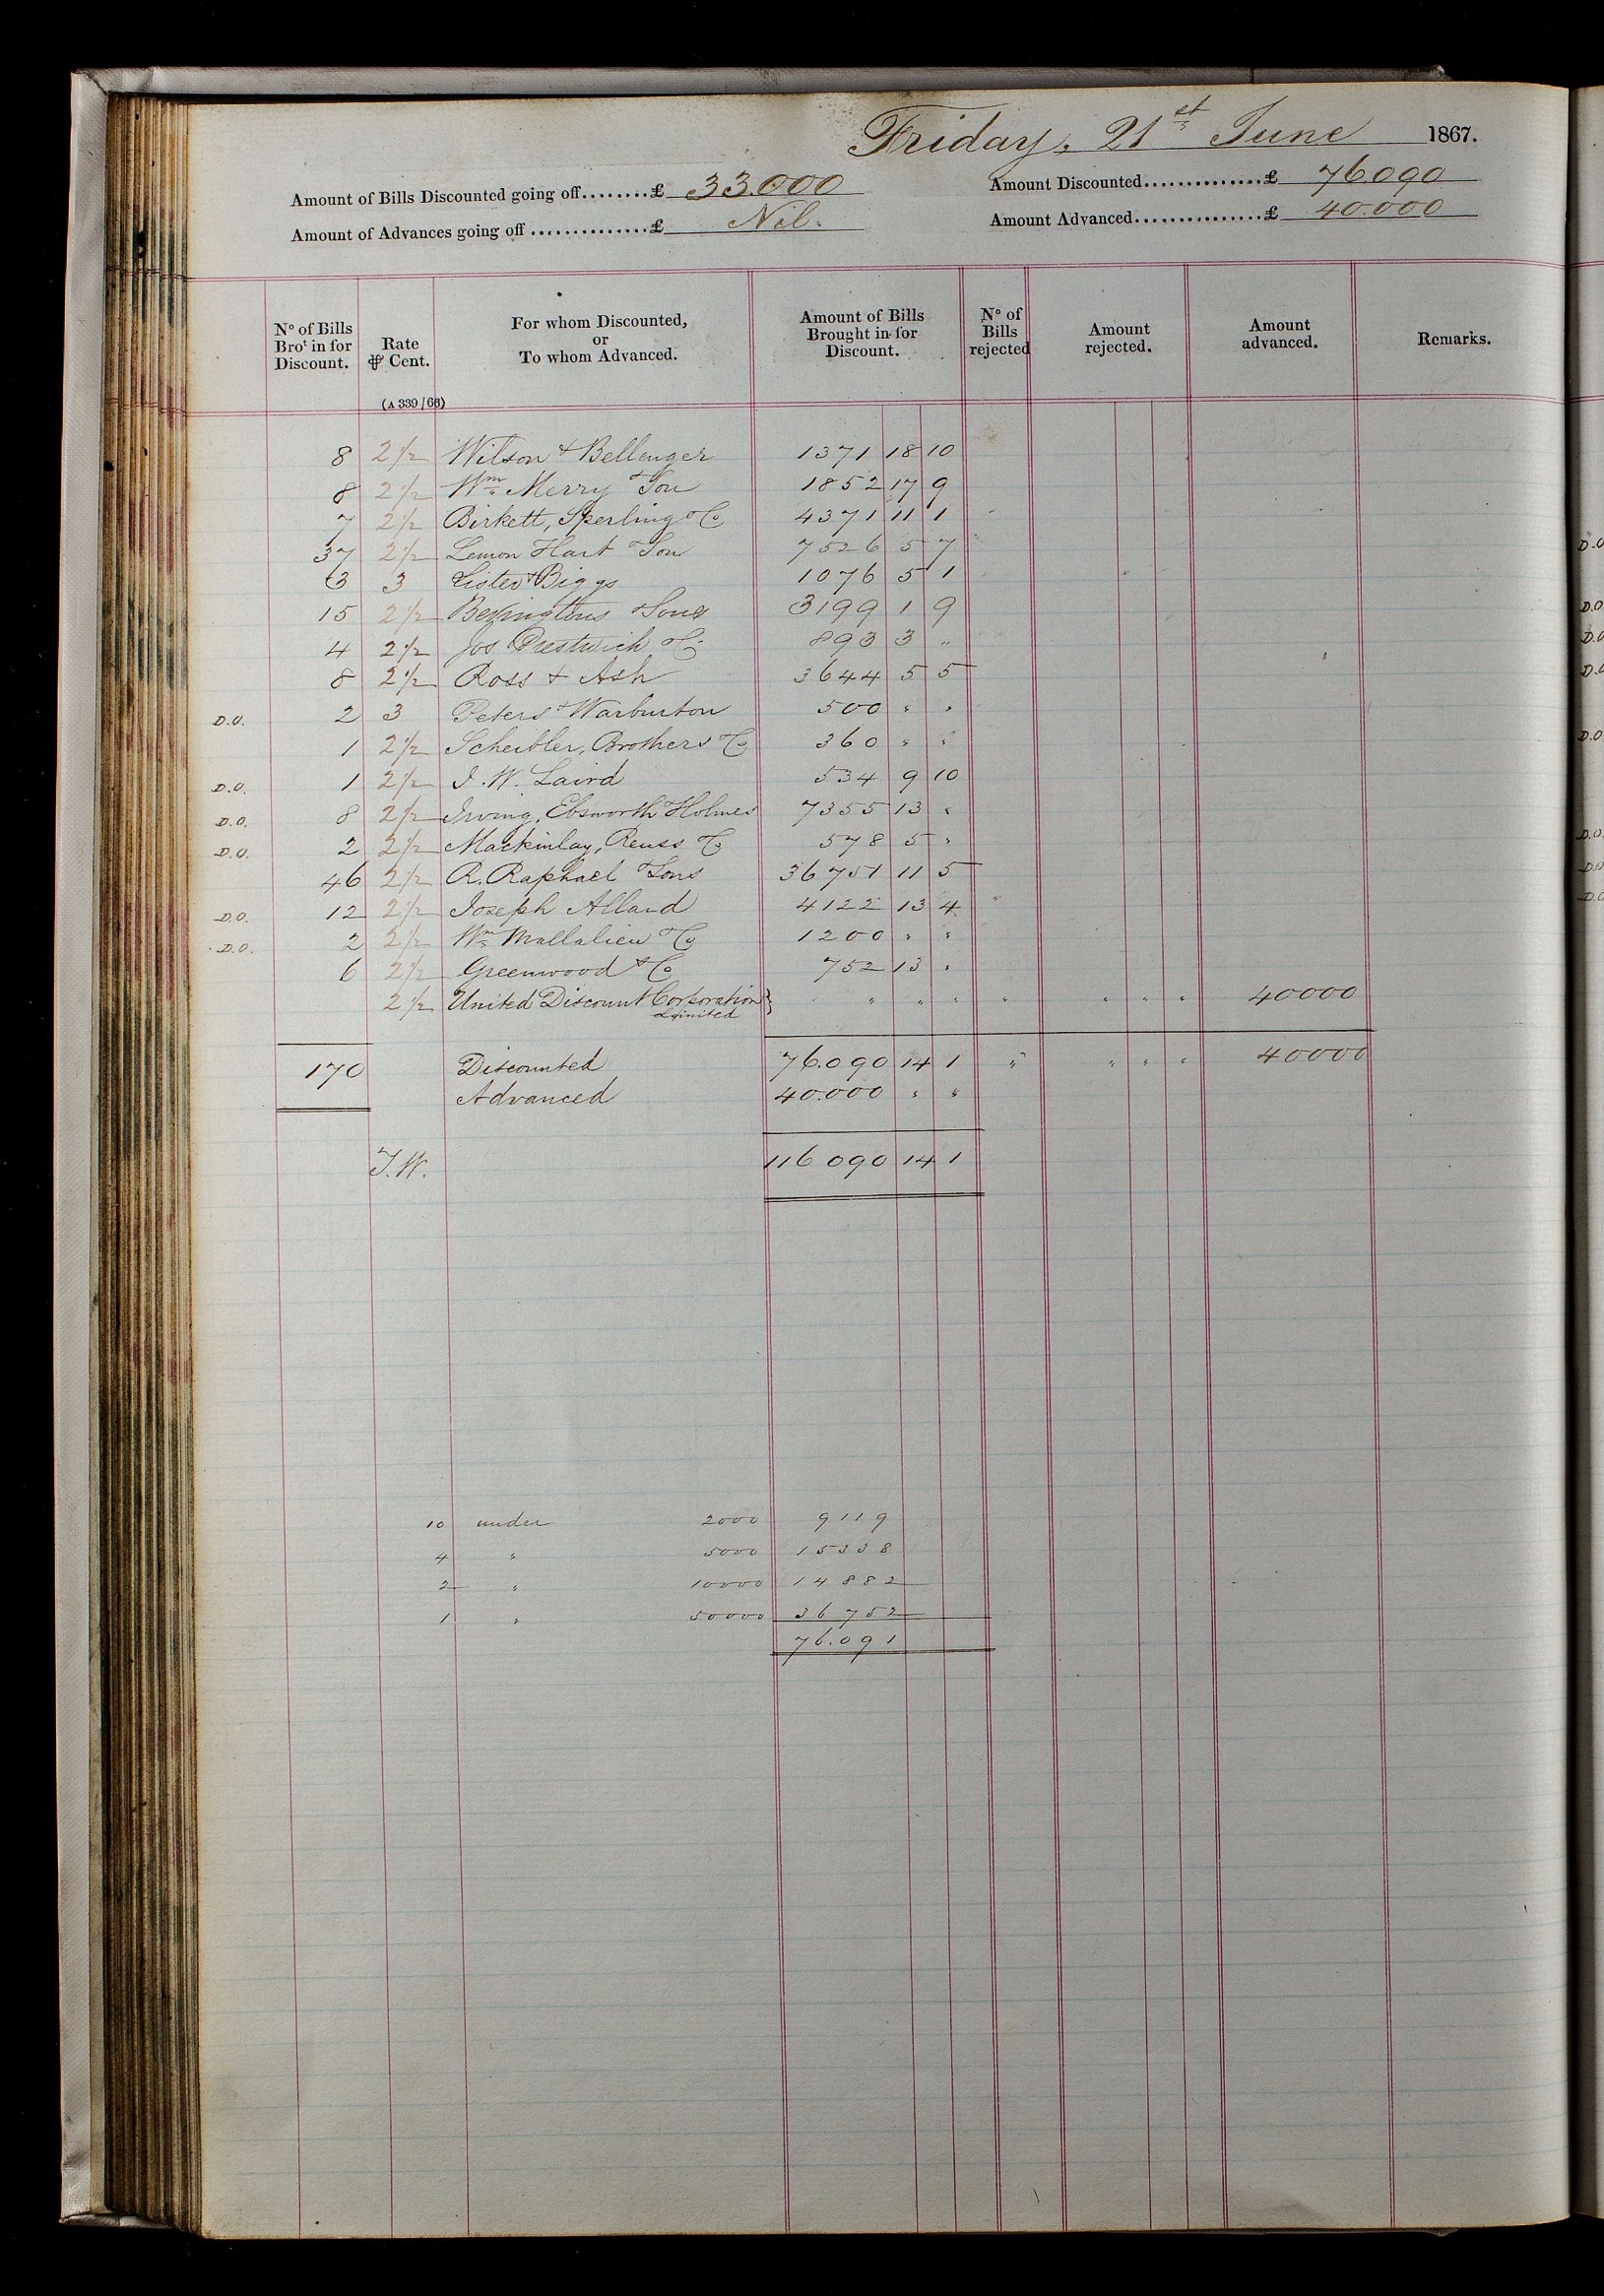 Friday, 21st June 1867.
Amount of Bills Discounted going off........£ 33.000
Amount Discounted...............£ 76.090
Amount of Advances going off ..............£ Nil.
Amount Advanced...............£ 40.000
No of Bills Brot in for Discount.
Rate ⅌ Cent.
(A 339/66)
For whom Discounted, or To whom Advanced.
Amount of Bills Brought in for Discount.
No of Bills rejected
Amount rejected.
Amount advanced.
Remarks.
8 2½ Wilson & Bellenger 1371 18 10
8 2½ Wm Merry & Son 1852 17 9
7 2½ Birkett, Sperling & Co 4371 11 1
37 2½ Lemon Hart & Son 7526 5 7
3 3 Lister & Biggs 1076 5 1
15 2½ Bevingtons & Sons 3199 1 9
4 2½ Jos Prestwich & Co 893 3 "
8 2½ Ross & Ash 3644 5 5
D.O. 2 3 Peters & Warburton 500 " "
1 2½ Scheibler, Brothers & Co 360 " "
D.O. 1 2½ J. W. Laird 534 9 10
D.O. 8 2½ Irving, Ebsworth & Holmes 7355 13 "
D.O. 2 2½ Mackinlay, Reuss & Co 578 5 "
46 2½ R. Raphael & Sons 36751 11 5
D.O. 12 2½ Joseph Allard 4122 13 4
D.O. 2 2½ Wm Mallalieu & Co 1200 " "
6 2½ Greenwood & Co 752 13 "
2½ United Discount Corporation } " " " " " " " 40000
Limited
170 Discounted 76.090 14 1 " " " " 40000
Advanced 40.000 " "
J.W. 116 090 14 1
10 under 2000 9119
4 " 5000 15338
2 " 10000 14882
1 " 50000 36752
76.091
D.O.
D.O.
D.O.
D.O.
D.O.
D.O.
D.O.
D.O.